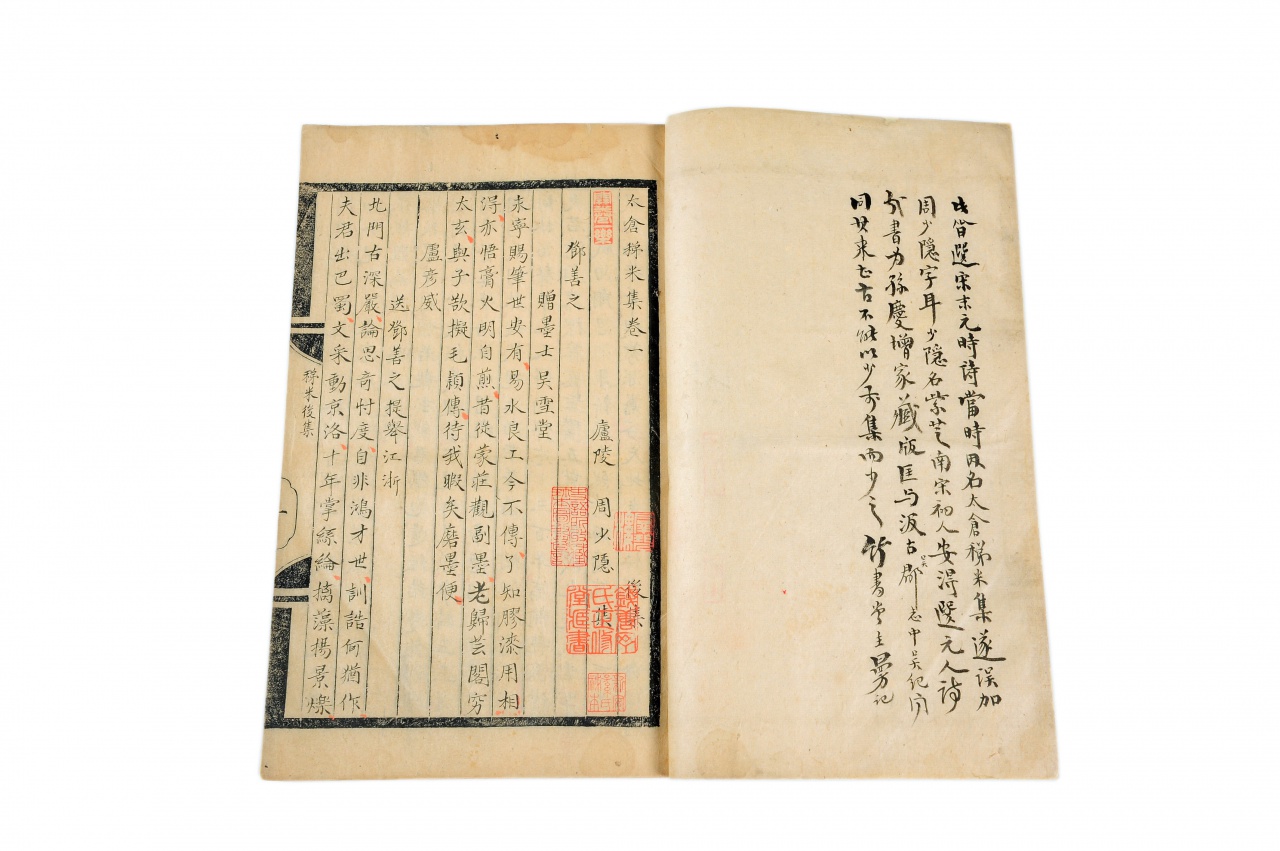 此皆選宋末元時詩當時因名太倉稊米集遂誤加
周少隱字耳少隱名紫芝南宋初人安得選元人詩
書為孫慶增家藏版匡与汲古郡吳志中吳紀
同其來已古不能以少而少之竹書堂主記
太倉稊米集卷一 後集
廬陵 周少隱 集
鄧善之
贈墨士吳雪堂
來寧賜筆世安有易水良工今不傳了知膠漆用相
得亦悟膏火明自煎昔從蒙莊觀副墨老歸芸閣窮
太玄與子欲擬毛穎傳待我暇矣磨墨便
盧彥威
送鄧善之提舉江浙
北門古深嚴論思奇忖度自非鴻才世訓誥何猶作
夫君出巴蜀文采動京洛十年掌絲綸摛藻揚景爍
稊米後集
一